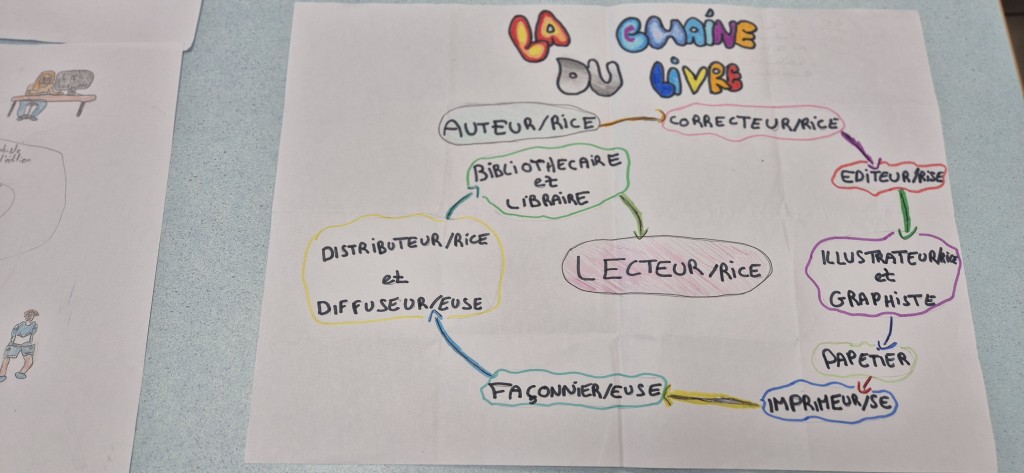 LA GHAÎNE
DU LIVRE
AUTEUR/RICE
CORRECTEUR/RICE
EDITEUR/RISE
ILLUSTRATEUR/RICE
et
GRAPHISTE
PAPETIER
IMPRIMEUR/SE
FAÇONNIER/EUSE
DISTRIBUTEUR/RICE
et
DIFFUSEUR/EUSE
BIBLIOTHECAIRE
et
LIBRAIRE
LECTEUR/RICE